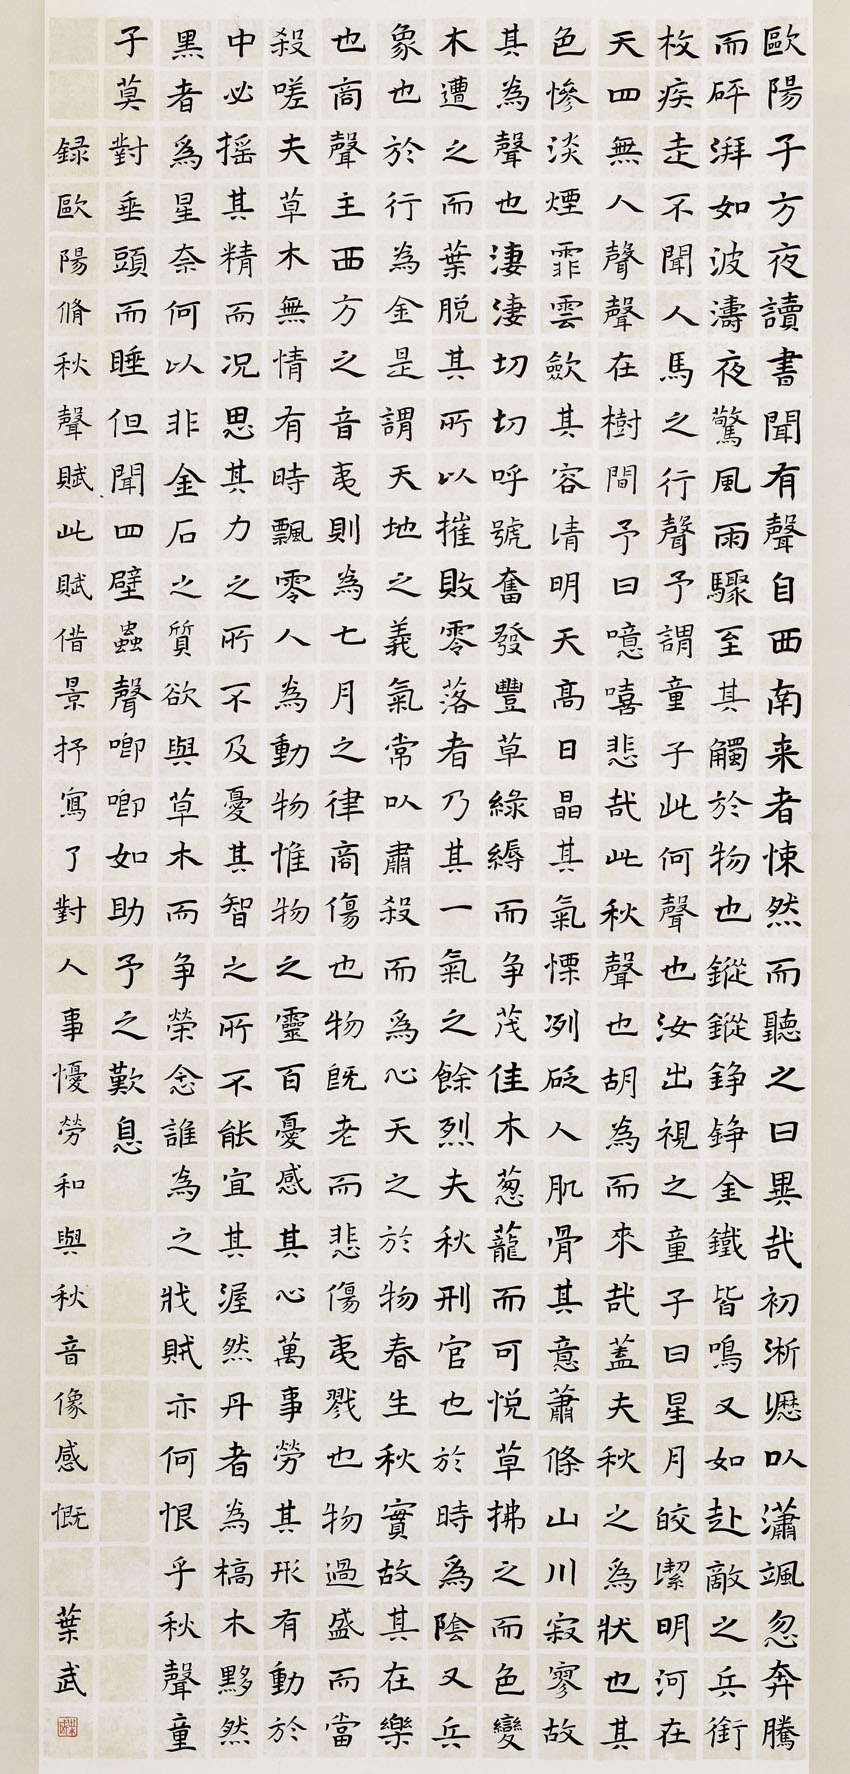 歐陽子方夜讀書聞有聲自西南来者悚然而聽之曰異哉初淅瀝以瀟颯忽奔騰
而砰湃如波濤夜驚風雨驟至其觸於物也鏦鏦錚錚金鐵皆鳴又如赴敵之兵銜
枚疾走不聞人馬之行聲予謂童子此何聲也汝出視之童子曰星月皎潔明河在
天四無人聲聲在樹間予曰噫嘻悲哉此秋聲也胡為而來哉蓋夫秋之爲狀也其
色慘淡煙霏雲歛其容清明天高日晶其氣慄冽砭人肌骨其意蕭條山川寂寥故
其為聲也淒淒切切呼號奮發豐草綠縟而争茂佳木葱蘢而可悦草拂之而色變
木遭之而葉脱其所以摧敗零落者乃其一氣之餘烈夫秋刑官也於時爲陰又兵
象也於行為金是謂天地之義氣常以肅殺而爲心天之於物春生秋實故其在樂
也商聲主西方之音夷則為七月之律商傷也物既老而悲傷夷戮也物過盛而當
殺嗟夫草木無情有時飄零人為動物惟物之靈百憂感其心萬事勞其形有動於
中必摇其精而况思其力之所不及憂其智之所不能宜其渥然丹者為槁木黟然
黑者爲星奈何以非金石之質欲與草木而争榮念誰為之戕賊亦何恨乎秋聲童
子莫對垂頭而睡但聞四壁蟲聲唧唧如助予之歎息
録歐陽脩秋聲賦此賦借景抒寫了對人事懮勞和與秋音像感慨 葉武